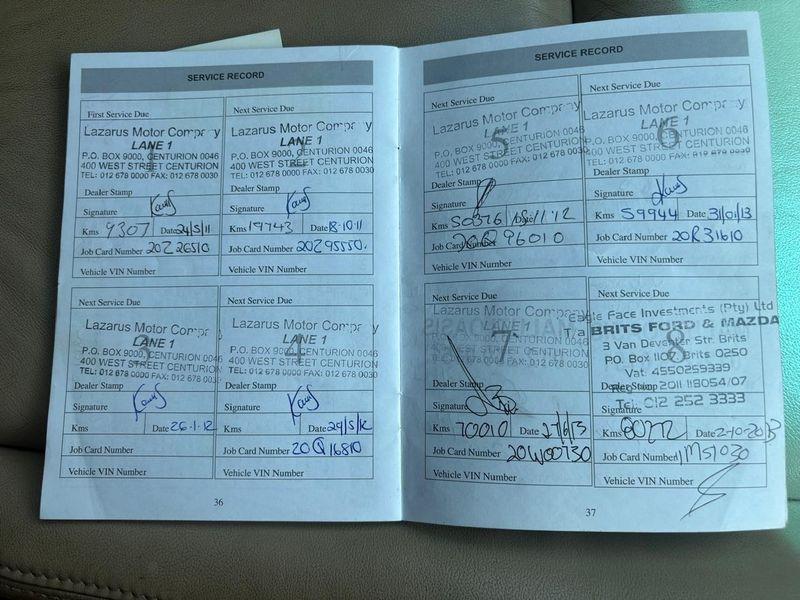 SERVICE RECORD
First Service Due
Lazarus Motor Company
LANE 1
P.O. BOX 9000, CENTURION 0046
400 WEST STREET CENTURION
TEL: 012 678 0000 FAX: 012 678 0030
Dealer Stamp
Signature
Kms 9307 Date 24/5/11
Job Card Number 20Z26510
Vehicle VIN Number
Next Service Due
Lazarus Motor Company
LANE 1
2
P.O. BOX 9000, CENTURION 0046
400 WEST STREET CENTURION
TEL: 012 678 0000 FAX: 012 678 0030
Dealer Stamp
Signature
Kms 19743 Date 18-10-11
Job Card Number 20Z95550.
Vehicle VIN Number
Next Service Due
Lazarus Motor Company
LANE 1
3
P.O. BOX 9000, CENTURION 0046
400 WEST STREET CENTURION
TEL: 012 678 0000 FAX: 012 678 0030
Dealer Stamp
Signature
Kms Date 26-1-12
Job Card Number
Vehicle VIN Number
Next Service Due
Lazarus Motor Company
LANE 1
4
P.O. BOX 9000, CENTURION 0046
400 WEST STREET CENTURION
TEL: 012 678 0000 FAX: 012 678 0030
Dealer Stamp
Signature
Kms Date 29/5/12
Job Card Number 20Q16810
Vehicle VIN Number
36
SERVICE RECORD
Next Service Due
Lazarus Motor Company
5
LANE 1
P.O. BOX 9000, CENTURION 0046
400 WEST STREET CENTURION
TEL: 012 678 0000 FAX: 012 678 0030
Dealer Stamp
Signature
Kms 50376 Date
Job Card Number 20Q96010
Vehicle VIN Number
Next Service Due
Lazarus Motor Company
6
LANE 1
P.O. BOX 9000, CENTURION 0046
400 WEST STREET CENTURION
TEL: 012 678 0000 FAX: 012 678 0030
Dealer Stamp
Signature
Kms 59944 Date 31/01/13
Job Card Number 20R31610
Vehicle VIN Number
Next Service Due
Lazarus Motor Company
LANE 1
7
P.O. BOX 9000, CENTURION 0046
400 WEST STREET CENTURION
TEL: 012 678 0000 FAX: 012 678 0030
Dealer Stamp
Signature
Kms 70010 Date 27/6/13
Job Card Number 20W00730
Vehicle VIN Number
Next Service Due
Eagle Face Investments (Pty) Ltd
T/a BRITS FORD & MAZDA
8
3 Van Deventer Str. Brits
P.O. Box 110 Brits 0250
Vat: 4550259339
Dealer Stamp
Reg: 2011 118054/07
Tel: 012 252 3333
Signature
Kms 80272 Date 2-10-2013
Job Card Number 1M51030
Vehicle VIN Number
37